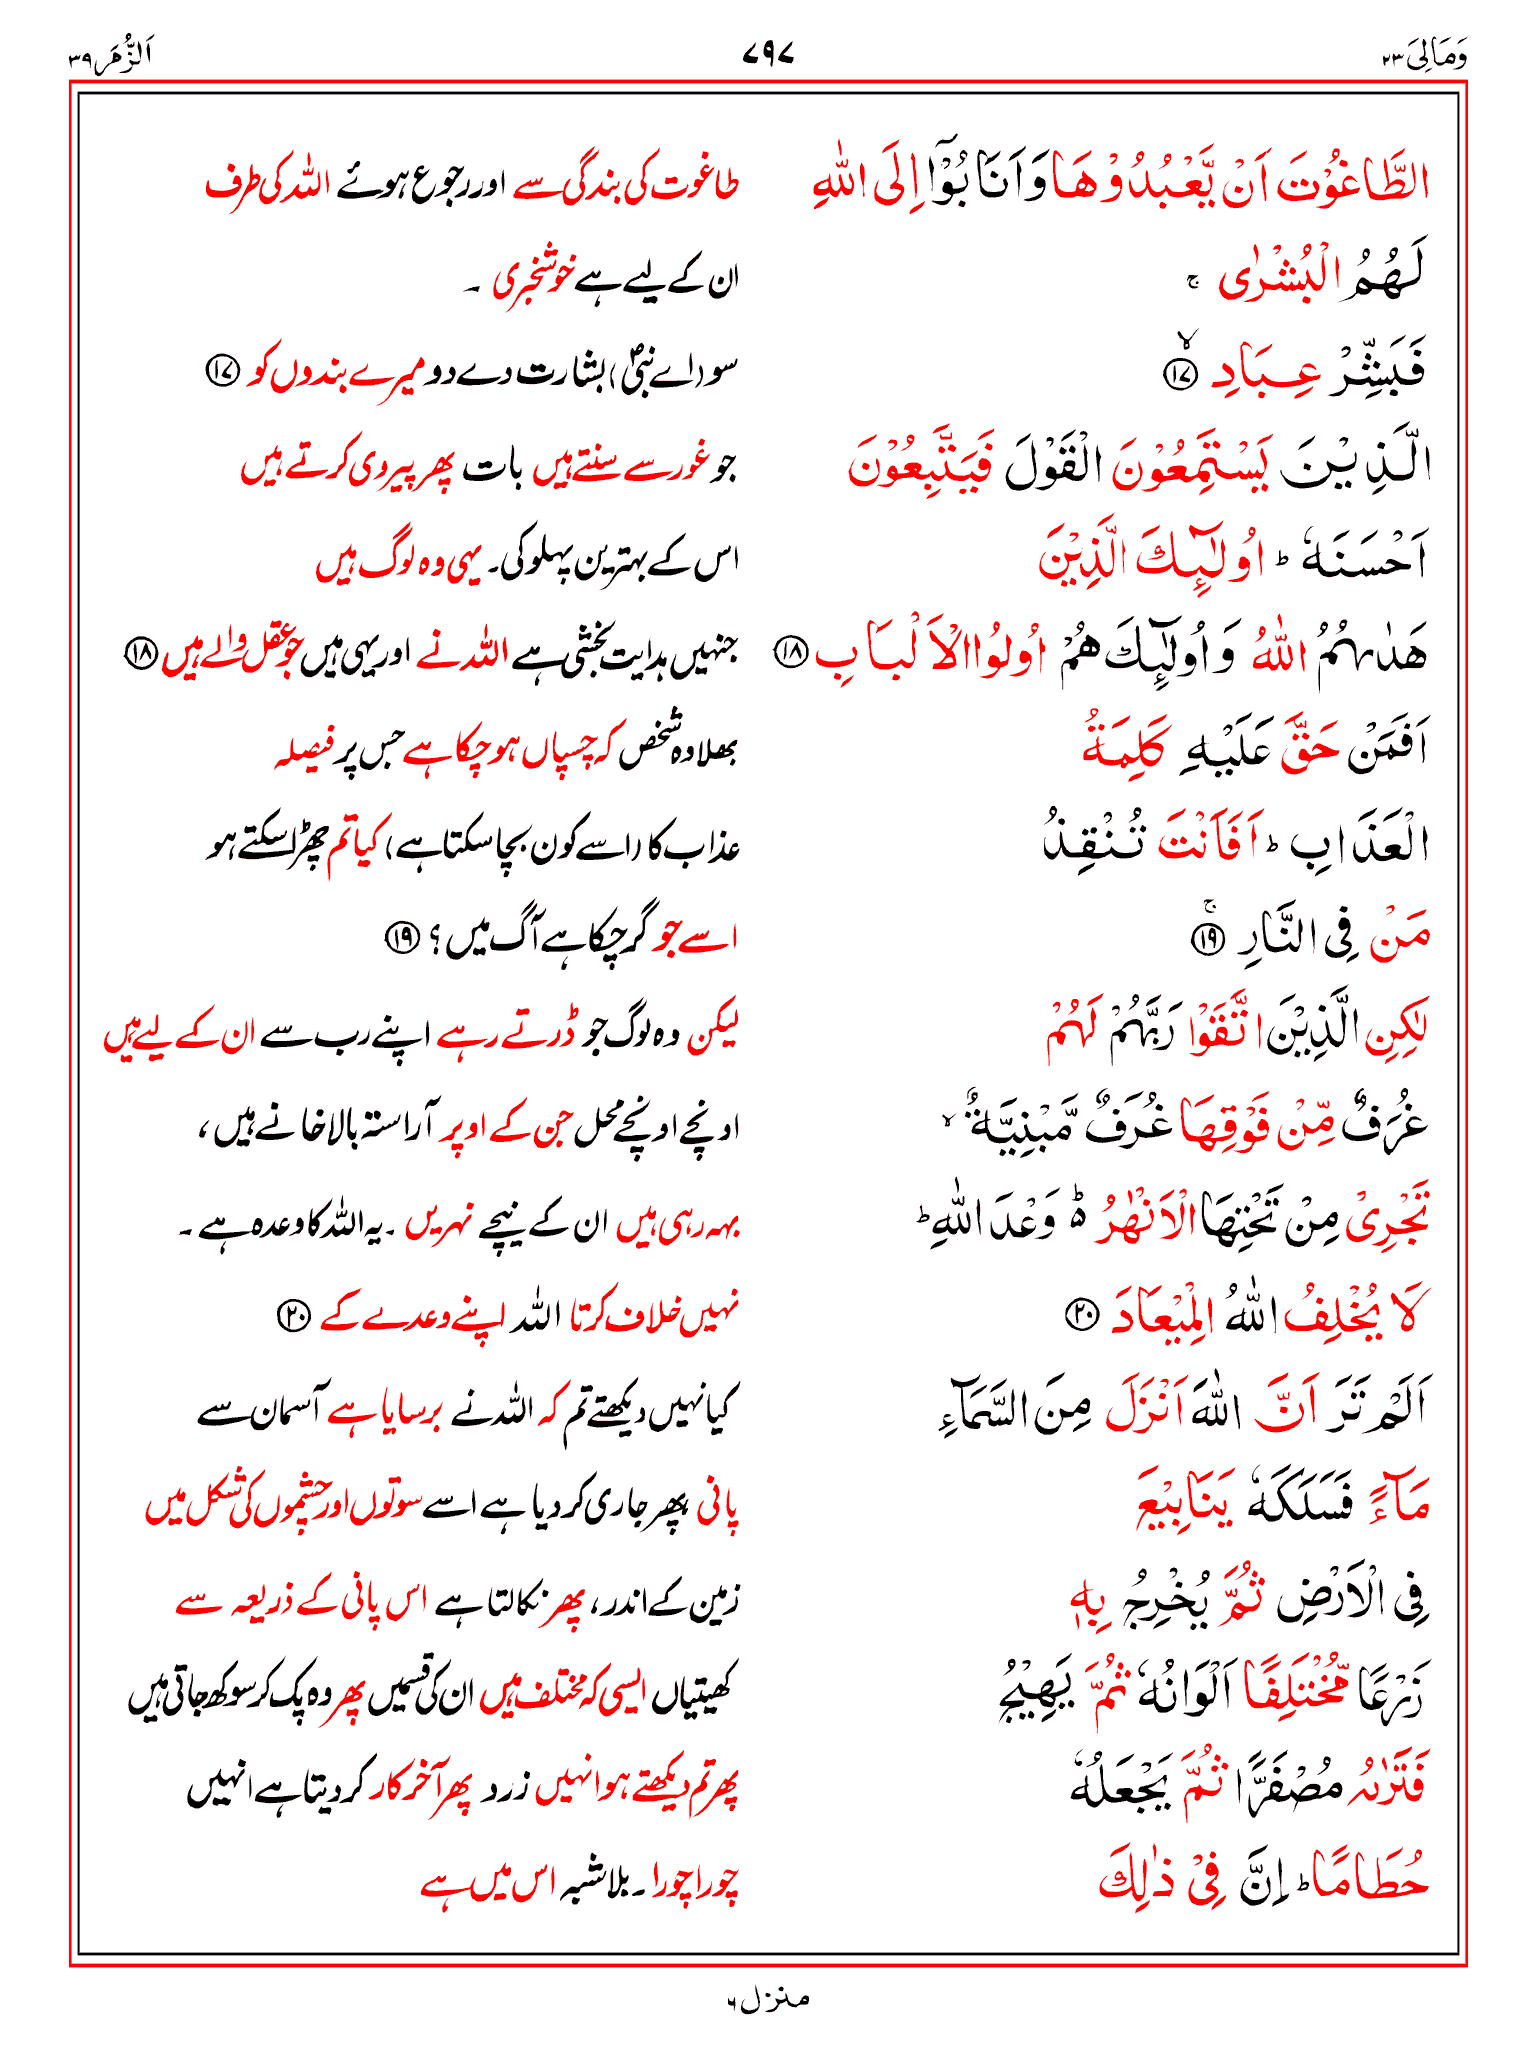 وَمَالِیَ ۲۳ ۷۹۷ اَلزُّمَر ۳۹
الطَّاغُوْتَ اَنْ یَّعْبُدُوْهَا وَاَنَابُوْۤا اِلَی اللّٰهِ طاغوت کی بندگی سے اور رجوع ہوئے اللہ کی طرف
لَهُمُ الْبُشْرٰی ۚ ان کے لیے ہے خوشخبری ۔
فَبَشِّرْ عِبَادِ ۙ ﴿۱۷﴾ سو (اے نبیؐ) بشارت دے دو میرے بندوں کو ﴿۱۷﴾
الَّذِیْنَ یَسْتَمِعُوْنَ الْقَوْلَ فَیَتَّبِعُوْنَ جو غور سے سنتے ہیں بات پھر پیروی کرتے ہیں
اَحْسَنَهٗ ؕ اُولٰٓئِكَ الَّذِیْنَ اس کے بہترین پہلو کی۔ یہی وہ لوگ ہیں
هَدٰىهُمُ اللّٰهُ وَ اُولٰٓئِكَ هُمْ اُولُوا الْاَلْبَابِ ﴿۱۸﴾ جنہیں ہدایت بخشی ہے اللہ نے اور یہی ہیں جو عقل والے ہیں ﴿۱۸﴾
اَفَمَنْ حَقَّ عَلَیْهِ كَلِمَةُ بھلا وہ شخص کہ چسپاں ہو چکا ہے جس پر فیصلہ
الْعَذَابِ ؕ اَفَاَنْتَ تُنْقِذُ عذاب کا (اسے کون بچا سکتا ہے) کیا تم چھڑا سکتے ہو
مَنْ فِی النَّارِ ۚ ﴿۱۹﴾ اسے جو گر چکا ہے آگ میں؟ ﴿۱۹﴾
لٰكِنِ الَّذِیْنَ اتَّقَوْا رَبَّهُمْ لَهُمْ لیکن وہ لوگ جو ڈرتے رہے اپنے رب سے ان کے لیے ہیں
غُرَفٌ مِّنْ فَوْقِهَا غُرَفٌ مَّبْنِیَّةٌ ۙ اونچے اونچے محل جن کے اوپر آراستہ بالاخانے ہیں،
تَجْرِیْ مِنْ تَحْتِهَا الْاَنْهٰرُ ؕ۬ وَعْدَ اللّٰهِ ؕ بہہ رہی ہیں ان کے نیچے نہریں ۔ یہ اللہ کا وعدہ ہے ۔
لَا یُخْلِفُ اللّٰهُ الْمِیْعَادَ ﴿۲۰﴾ نہیں خلاف کرتا اللہ اپنے وعدے کے ﴿۲۰﴾
اَلَمْ تَرَ اَنَّ اللّٰهَ اَنْزَلَ مِنَ السَّمَآءِ کیا نہیں دیکھتے تم کہ اللہ نے برسایا ہے آسمان سے
مَآءً فَسَلَكَهٗ یَنَابِیْعَ پانی پھر جاری کر دیا ہے اسے سوتوں اور چشموں کی شکل میں
فِی الْاَرْضِ ثُمَّ یُخْرِجُ بِهٖ زمین کے اندر، پھر نکالتا ہے اس پانی کے ذریعہ سے
زَرْعًا مُّخْتَلِفًا اَلْوَانُهٗ ثُمَّ یَهِیْجُ کھیتیاں ایسی کہ مختلف ہیں ان کی قسمیں پھر وہ پک کر سوکھ جاتی ہیں
فَتَرٰىهُ مُصْفَرًّا ثُمَّ یَجْعَلُهٗ پھر تم دیکھتے ہو انہیں زرد پھر آخر کار کر دیتا ہے انہیں
حُطَامًا ؕ اِنَّ فِیْ ذٰلِكَ چورا چورا ۔ بلاشبہ اس میں ہے
منزل ۶